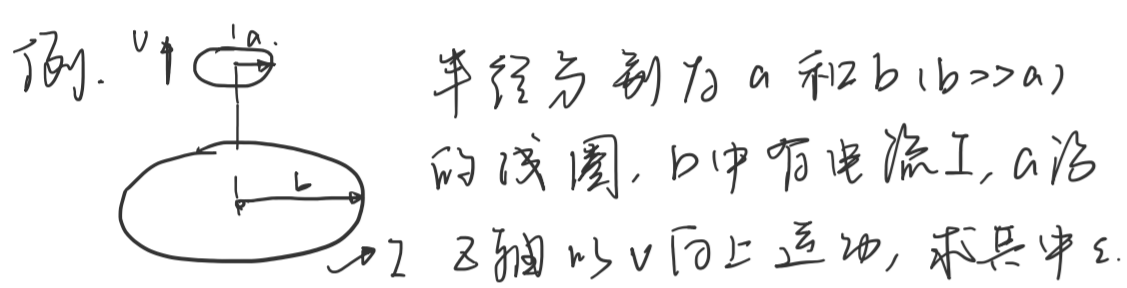 例. v a.
半径分别为 a 和 b (b>>a)
的线圈, b中有电流I, a沿
b
I z轴以v向上运动, 求其中ε.